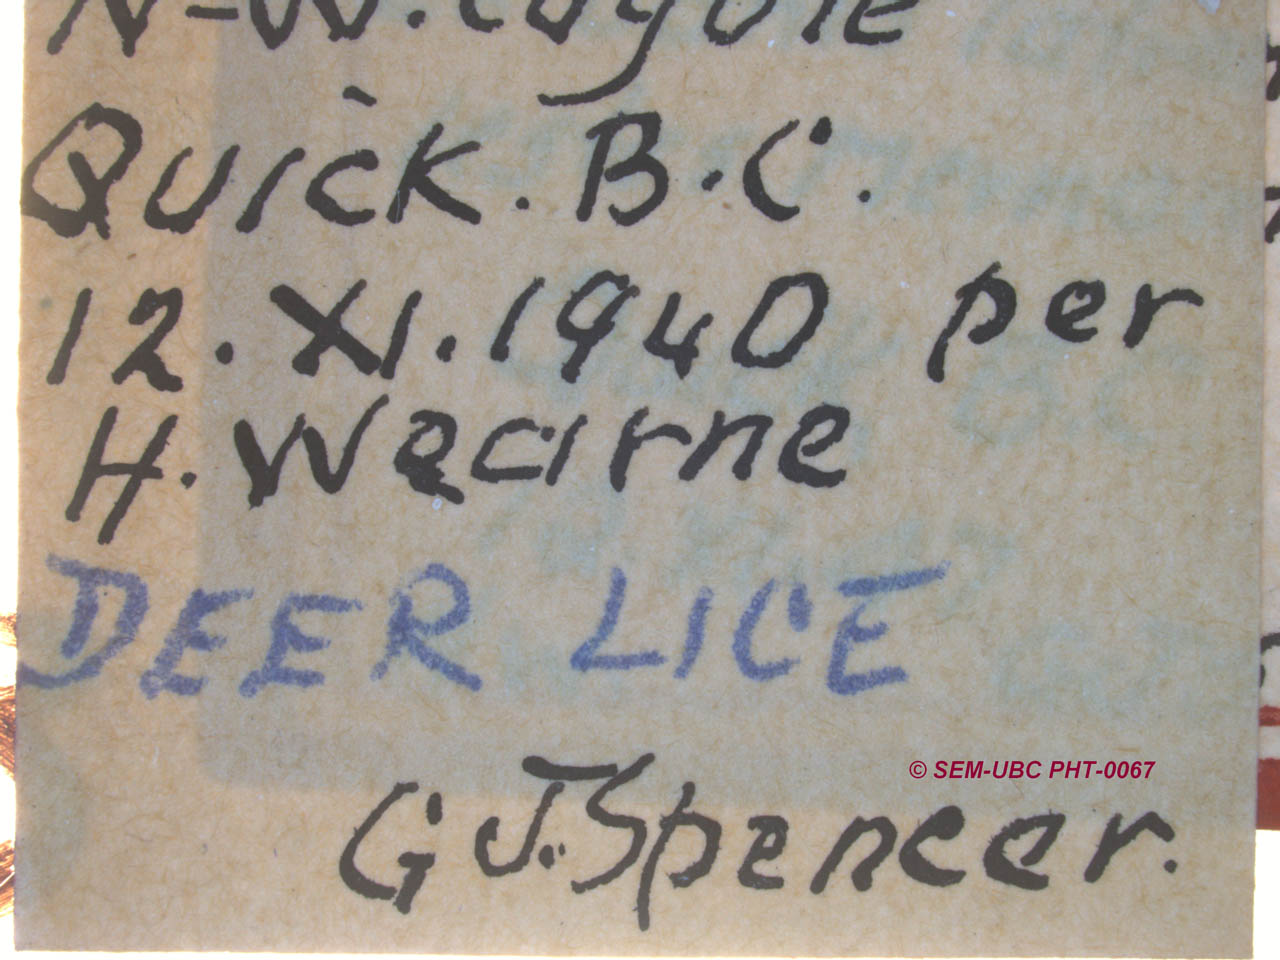 N-W. Coyote
Quick. B.C.
12.XI.1940 per
H. Wearne
DEER LICE
© SEM-UBC PHT-0067
G J. Spencer.